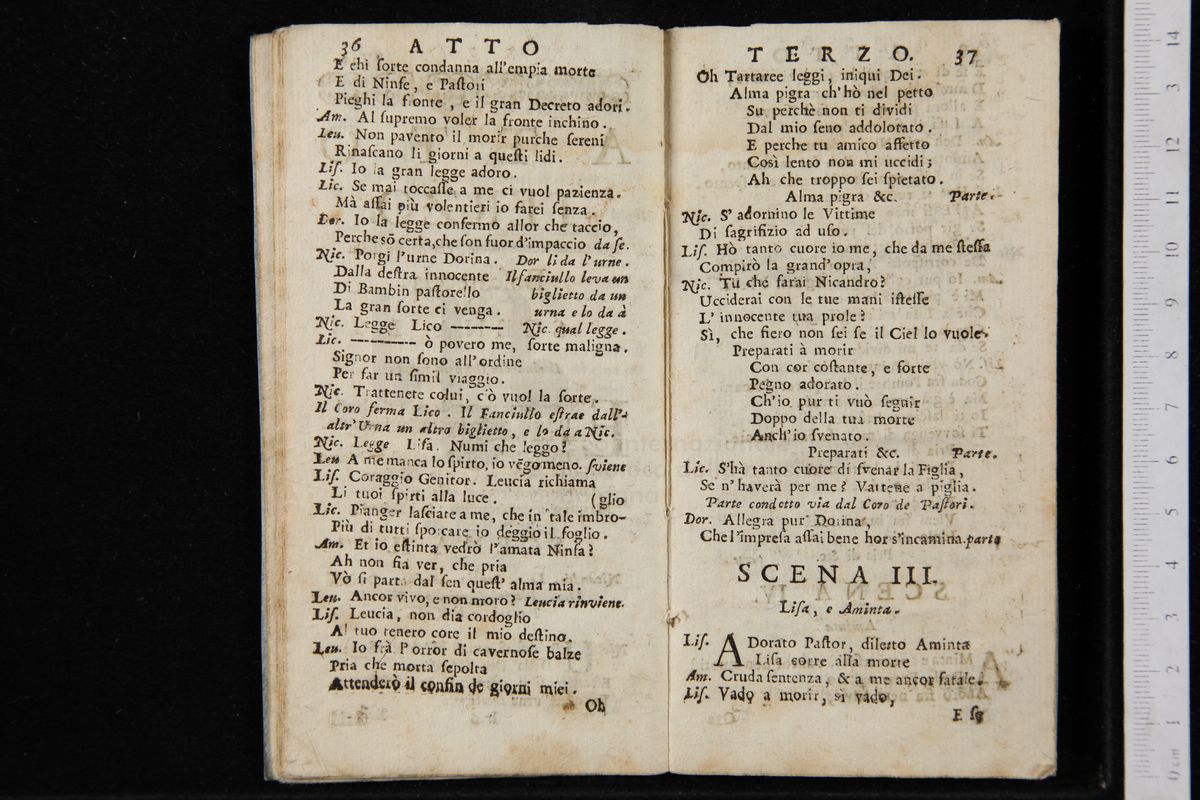 36 ATTO
E chi ſorte condanna all'empia morte
E di Ninfe, e Paſtori
Pieghi la fronte, e il gran Decreto adori.
Am. Al ſupremo voler la fronte inchino.
Leu. Non pavento il morir purche ſereni
Rinaſcano li giorni a queſti lidi.
Liſ. Io la gran legge adoro.
Lic. Se mai toccaſſe a me ci vuol pazienza.
Mà aſſai più volentieri io farei ſenza.
Dor. Io la legge confermo allor che taccio,
Perche sõ certa, che ſon fuor d'impaccio da ſe.
Nic. Porgi l'urne Dorina. Dor li da l'urne.
Dalla deſtra innocente Il fanciullo leva un
Di Bambin paſtorello biglietto da un
La gran ſorte ci venga. urna e lo da à
Nic. Legge Lico -------- Nic. qual legge.
Lic. ---------- ò povero me, ſorte maligna.
Signor non ſono all'ordine
Per far un ſimil viaggio.
Nic. Trattenete colui, c'ò vuol la ſorte.
Il Coro ferma Lico. Il Fanciullo eſtrae dall'-
altr'Urna un altro biglietto, e lo da a Nic.
Nic. Legge Liſa. Numi che leggo?
Leu A me manca lo ſpirto, io vẽgo meno. ſviene
Liſ. Coraggio Genitor. Leucia richiama
Li tuoi ſpirti alla luce. (glio
Lic. Pianger laſciate a me, che in tale imbro-
Più di tutti ſporcare io deggio il foglio.
Am. Et io eſtinta vedrò l'amata Ninfa?
Ah non fia ver, che pria
Vò ſi parta dal ſen queſt' alma mia.
Leu. Ancor vivo, e non moro? Leucia rinviene.
Liſ. Leucia, non dia cordoglio
Al tuo tenero core il mio deſtino.
Leu. Io frà l'orror di cavernoſe balze
Pria che morta ſepolta
Attenderò il confin de giorni miei.
Oh
TERZO. 37
Oh Tartaree leggi, iniqui Dei.
Alma pigra ch'hò nel petto
Su perchè non ti dividi
Dal mio ſeno addolorato.
E perche tu amico affetto
Così lento non mi uccidi;
Ah che troppo ſei ſpietato.
Alma pigra &c. Parte.
Nic. S' adornino le Vittime
Di ſagrifizio ad uſo.
Liſ. Hò tanto cuore io me, che da me ſteſſa
Compirò la grand'opra,
Nic. Tu che farai Nicandro?
Ucciderai con le tue mani iſteſſe
L' innocente tua prole?
Sì, che fiero non ſei ſe il Ciel lo vuole.
Preparati à morir
Con cor coſtante, e forte
Pegno adorato.
Ch'io pur ti vuò ſeguir
Doppo della tua morte
Anch'io ſvenato.
Preparati &c. Parte.
Lic. S'hà tanto cuore di ſvenar la Figlia,
Se n'haverà per me? Vattene a piglia.
Parte condetto via dal Coro de Paſtori.
Dor. Allegra pur Dorina,
Che l'impreſa aſſai bene hor s'incamina. parte
SCENA III.
Liſa, e Aminta.
Liſ. ADorato Paſtor, diletto Aminta
Liſa corre alla morte
Am. Cruda ſentenza, & a me ancor fatale.
Liſ. Vado a morir, sì vado,
E ſe